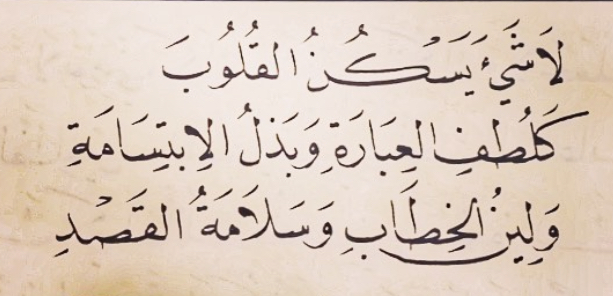 لَا شَيْءَ يَسْكُنُ القُلُوبَ
كَلُطفِ العِبَارَةِ وَبَذلُ الاِبتِسَامَةِ
وَلِينُ الخِطَابِ وَسَلَامَةُ القَصْدِ